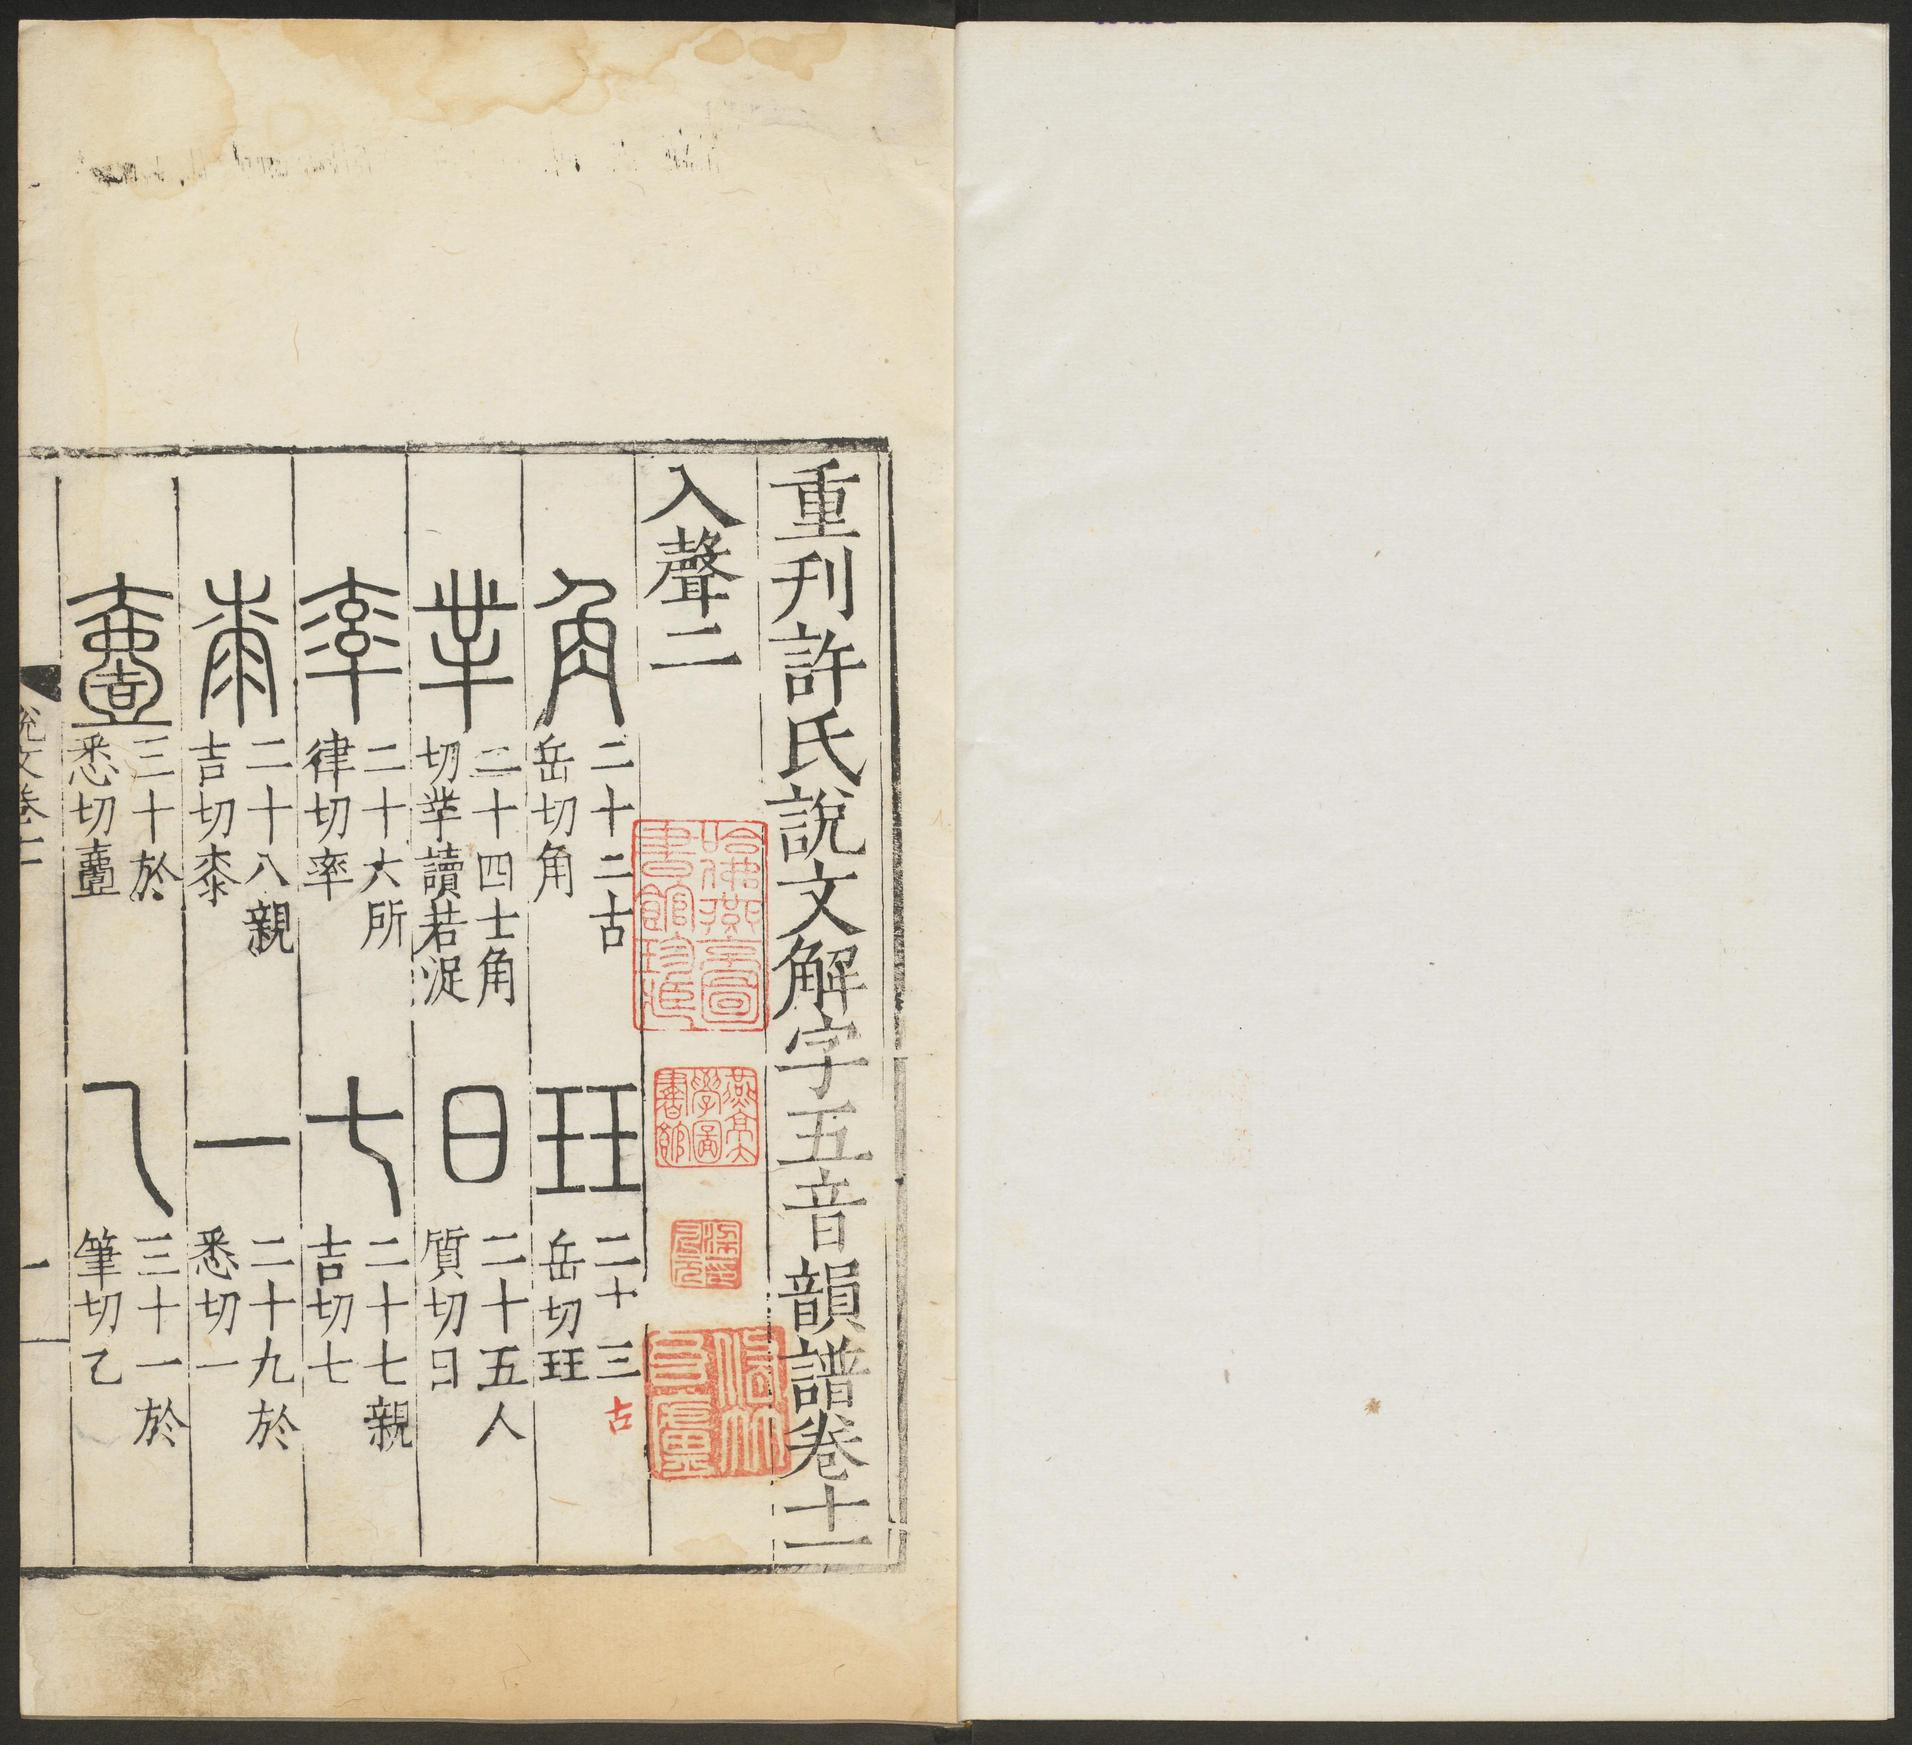 重刊許氏說文解字五音韻譜卷十一
入聲二
角 二十二古岳切角
玨 二十三古岳切玨
丵 二十四士角切丵讀若浞
日 二十五人質切日
率 二十六所律切率
七 二十七親吉切七
桼 二十八親吉切桼
一 二十九於悉切一
壹 三十於悉切壹
乙 三十一於筆切乙
說文卷十一
一
哈佛燕京圖書館珍藏